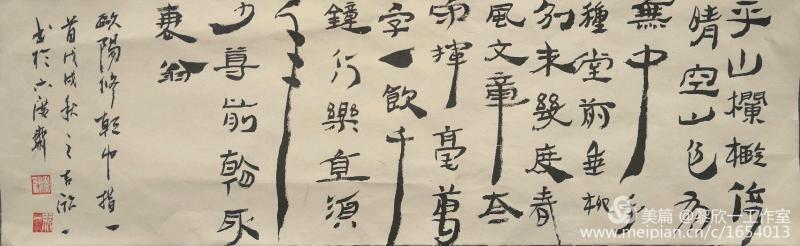 平山欄檻倚
晴空山色有
無中手
種堂前垂柳
別来幾度春
風文章太
守揮毫萬
字一飲千
鐘行樂直須
年
少尊前看取
衰翁
歐陽修朝中措一
首戊戌秋之吉欣一
書於六齋
美篇 @黎欣一工作室
www.meipian.cn/c/1654013